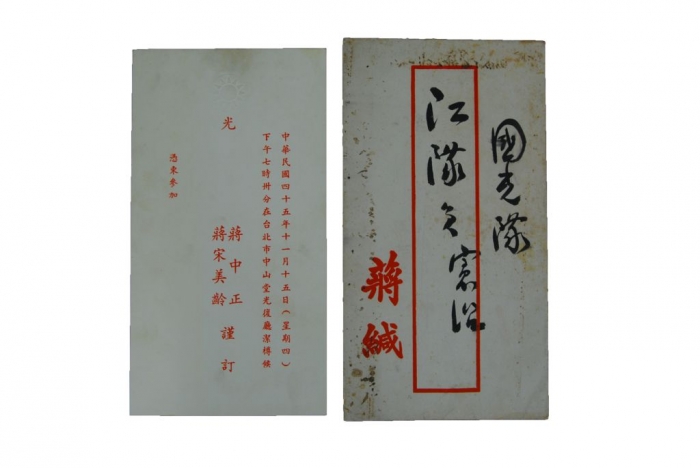 中華民國四十五年十一月十五日(星期四)
下午七時卅分在台北市中山堂光復廳潔樽候
光
蔣中正
蔣宋美齡
謹訂
憑柬參加
國光隊
江隊員憲治
蔣緘